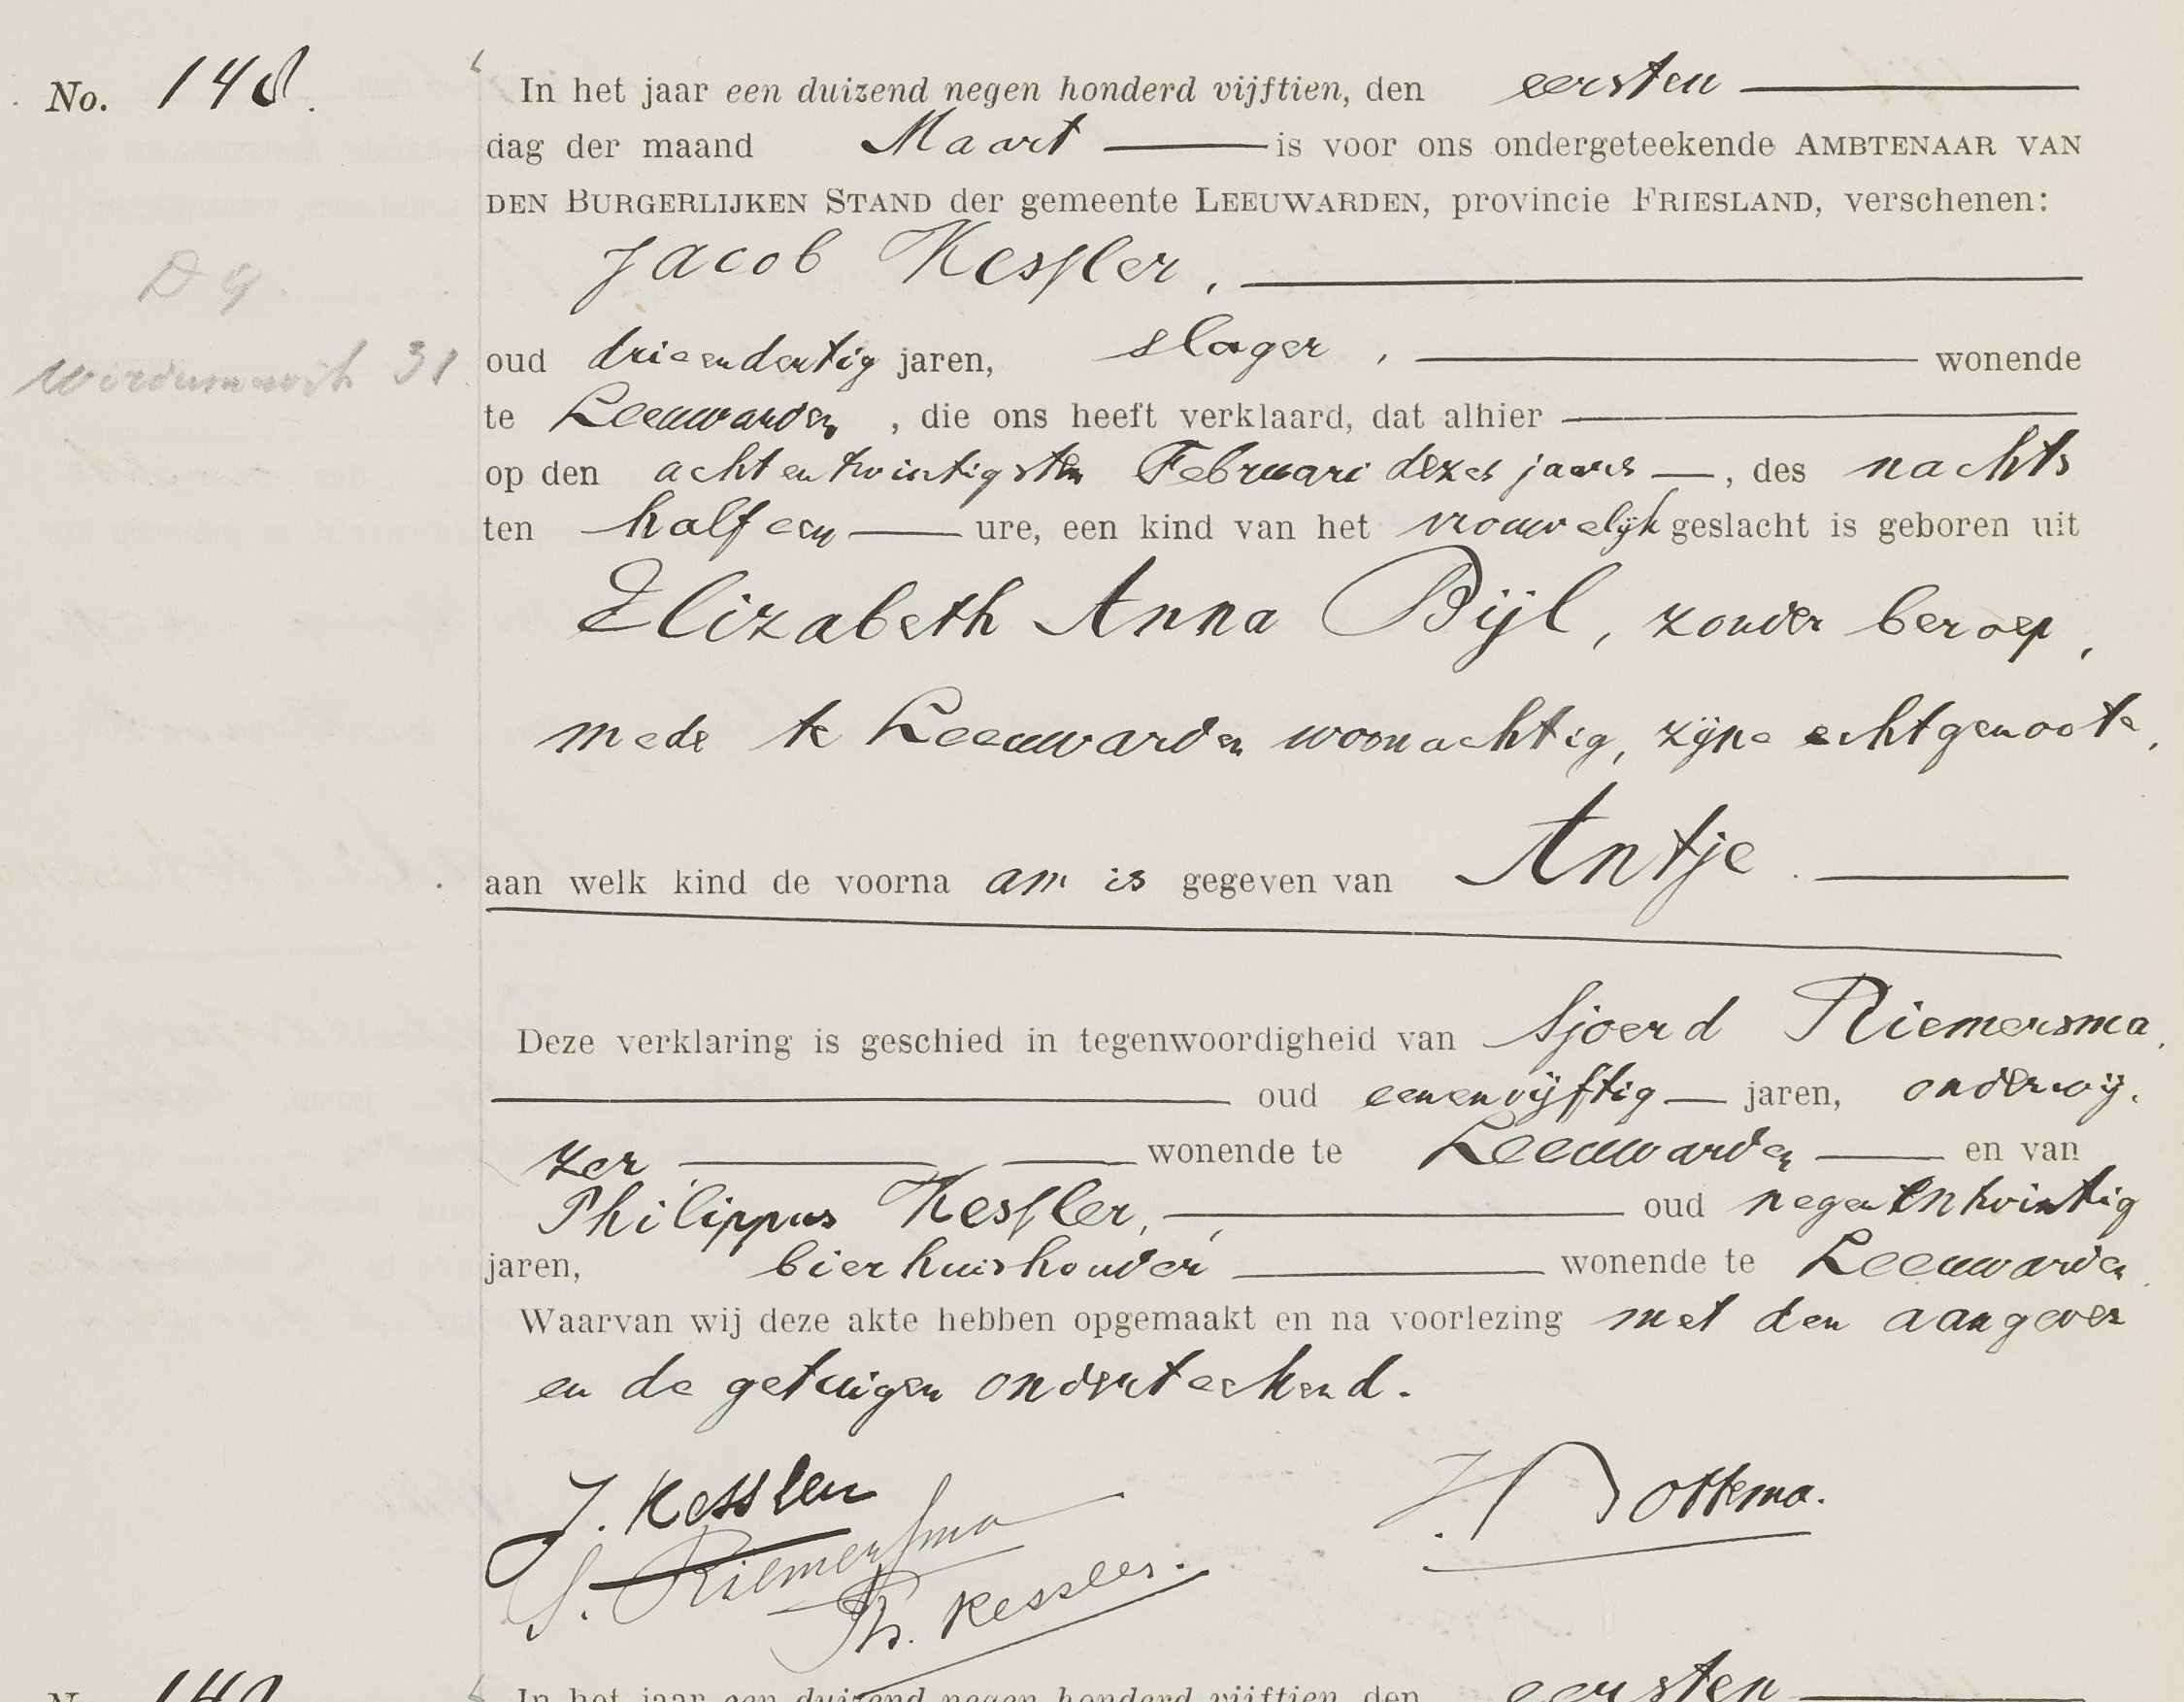 No. 148.
In het jaar een duizend negen honderd vijftien, den eersten
dag der maand Maart is voor ons ondergeteekende AMBTENAAR VAN
DEN BURGERLIJKEN STAND der gemeente LEEUWARDEN, provincie FRIESLAND, verschenen:
Jacob Kessler,
D G.
oud drieendertig jaren, slager, wonende
31
te Leeuwarden, die ons heeft verklaard, dat alhier
op den achtentwintigsten Februari dezes jaars, des nachts
ten half een ure, een kind van het vrouwelijk geslacht is geboren uit
Elizabeth Anna Bijl, zonder beroep,
mede te Leeuwarden woonachtig, zijne echtgenoote,
aan welk kind de voorna am is gegeven van Antje.
Deze verklaring is geschied in tegenwoordigheid van Sjoerd Riemersma,
oud eenenvijftig jaren, onderwij-
zer, wonende te Leeuwarden en van
Philippus Kessler, oud negenentwintig
jaren, bierhuishouder, wonende te Leeuwarden.
Waarvan wij deze akte hebben opgemaakt en na voorlezing met den aangever
en de getuigen onderteekend.
J. Kessler
S. Riemersma
Ph. Kessler.
H Dottema.
In het jaar een duizend negen honderd vijftien, den eersten